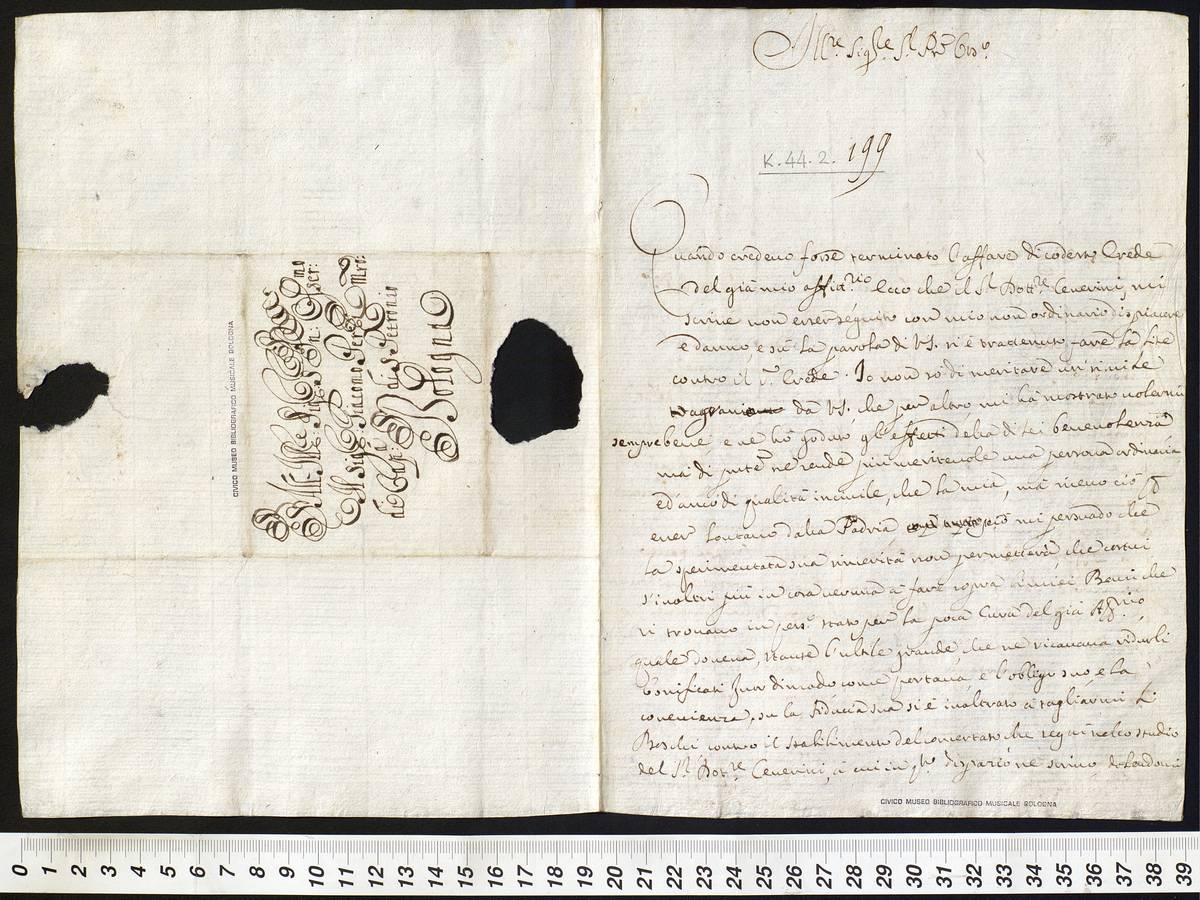 All' Ill.re Sig.r
Il Sig.r Giacomo
di Cap: di S Petronio
Bologna
CIVICO MUSEO BIBLIOGRAFICO MUSICALE BOLOGNA
Ill.re Sig.re
K.44.2. 199
Quando credevo fosse terminato l'affare di codesto Erede
del già mio Ecco che il S.r Dott.re Cenerini, mi
scrive non esser seguito con mio non ordinario dispiacere
e danno, e sù la parola di VS. si è trattenuto fare la lite
contro il Erede. Io non sò di meritare un simile
da VS. che per altro mi hà mostrato volermi
sempre bene, e ne hò goduto gl'effetti della di lei benevolenza
mà di ne rende più meritevole una persona ordinaria
ed anco di qualità incivile, che la mia, mà ciò
esser lontano dalla Padria mi persuado che
la sperimentata sua non permetterà che costui
s'inoltri più in cosa veruna à fare sopra di miei Beni che
si trovano in stato per la poca Cura del già
quale doveva, stante l'utile grande che ne ricavava ridurli
bonificati fuor di modo come portava e l'obligo suo, e la
convenienza, sù la fiducia sua si è inoltrato à tagliarmi li
Boschi contro il stabilimento del concertato che seguì nello studio
del S.r Dott.re Cenerini, à cui in scrivo
CIVICO MUSEO BIBLIOGRAFICO MUSICALE BOLOGNA
0 1 2 3 4 5 6 7 8 9 10 11 12 13 14 15 16 17 18 19 20 21 22 23 24 25 26 27 28 29 30 31 32 33 34 35 36 37 38 39